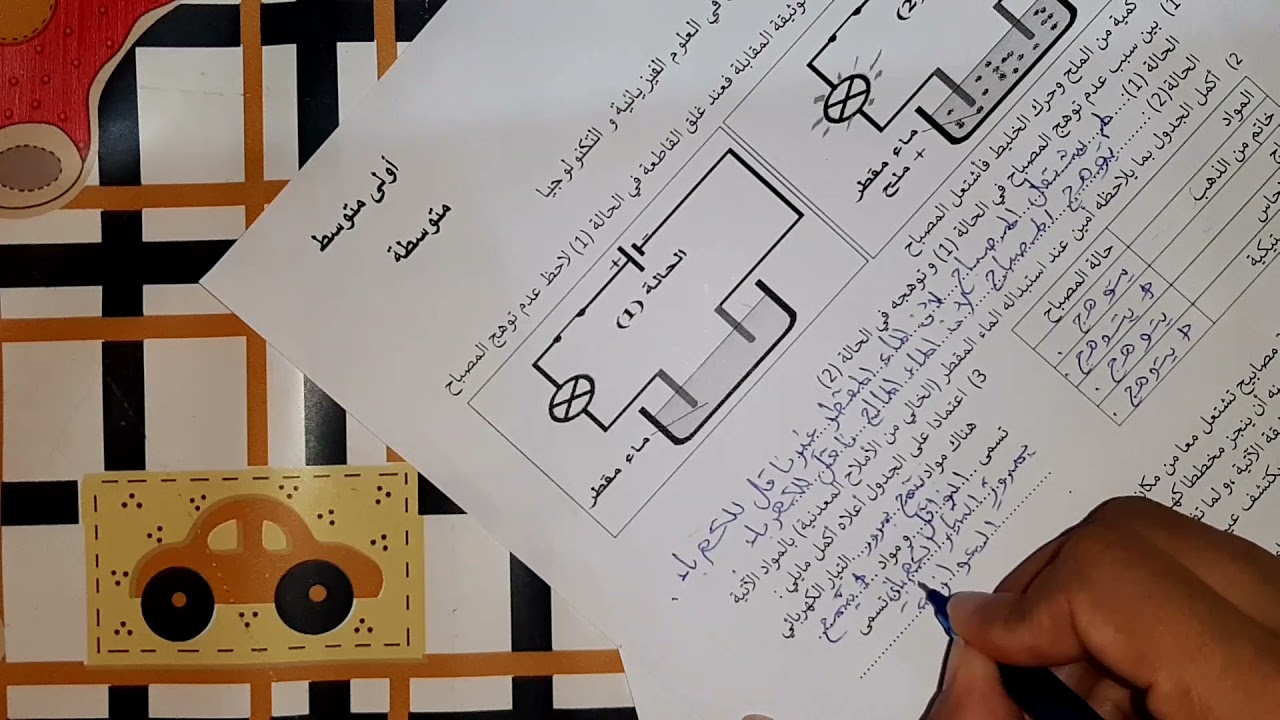 في العلوم الفيزيائية و التكنولوجيا
أولى متوسط
متوسطة
المقابلة فعند غلق القاطعة في الحالة (1) لاحظ عدم توهج المصباح
الحالة (1)
ماء مقطر
(2)
ماء مقطر
+ ملح
كمية من الملح وحرك الخليط فاشتعل المصباح
1) بين سبب عدم توهج المصباح في الحالة (1) و توهجه في الحالة (2)
الحالة (1) لم يشتعل المصباح لأن الماء المقطر غير ناقل للكهرباء .
الحالة (2) يتوهج المصباح لأن الماء المالح ناقل للكهرباء
2) أكمل الجدول بما يلاحظه أمين عند استبداله الماء المقطر (الخالي من الأملاح المعدنية) بالمواد الآتية
المواد
حالة المصباح
خاتم من الذهب
يتوهج .
لا يتوهج .
يتوهج .
لا يتوهج
3) اعتمادا على الجدول أعلاه أكمل مايلي :
هناك مواد تسمح بمرور التيار الكهربائي
تسمى النواقل و مواد لا تسمح
بمرور التيار تسمى
مصابيح تشتعل معا من مكان